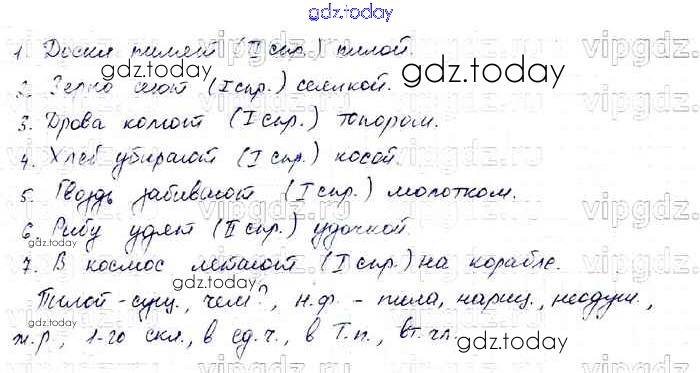 gdz.today
1. Доски пилят (II спр.) пилой.
2. Зерно сеют (I спр.) сеялкой.
3. Дрова колют (I спр.) топором.
4. Хлеб убирают (I спр.) косой.
5. Гвоздь забивают (I спр.) молотком.
6. Рыбу удят (II спр.) удочкой.
7. В космос летают (I спр.) на корабле.
Пилой - сущ., чем?, н.ф. - пила, нариц., неодуш.,
ж.р., 1-го скл., в ед.ч., в Т.п., вт. чл.
gdz.today
gdz.today
gdz.today
gdz.today
gdz.today
vipgdz.ru